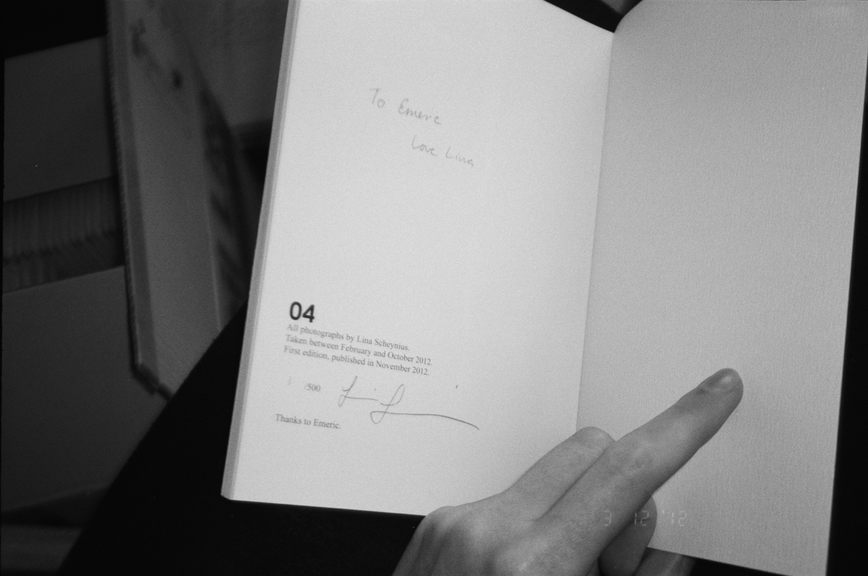 To Emeric
Love Lina
04
All photographs by Lina Scheynius.
Taken between February and October 2012.
First edition, published in November 2012.
/500
Thanks to Emeric.
3 12 '12